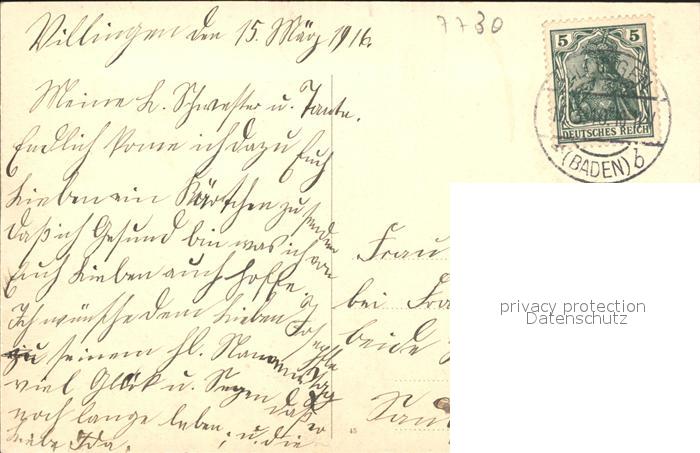 7730
Villingen den 15. März 1916.
5 5
DEUTSCHES REICH
(BADEN) b
Meine l. Schwester u. Tante.
Endlich kome ich dazu Euch
Lieben ein Kärtchen zu senden
daß ich Gesund bin was ich von
Euch Lieben auch hoffe.
Ich wünsche dem Lieben
Josephle
zu seinem hl. Namenstag
viel Glük u. Segen daß er
noch lange leben
liebe Ida. u. die
Frau
bei Fra
beide
privacy protection
Datenschutz